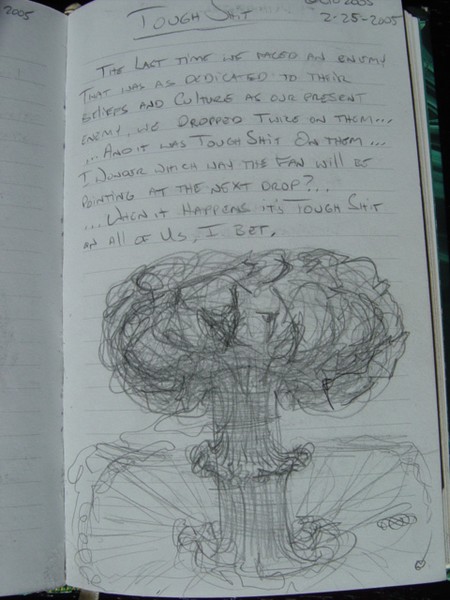 2005
Tough Shit
2005
2-25-2005
The last time we faced an enemy
that was as dedicated to their
beliefs and culture as our present
enemy, we dropped twice on them...
...And it was Tough Shit on them...
I wonder which way the fan will be
pointing at the next drop?...
...When it happens it's Tough Shit
on all of us, I bet.